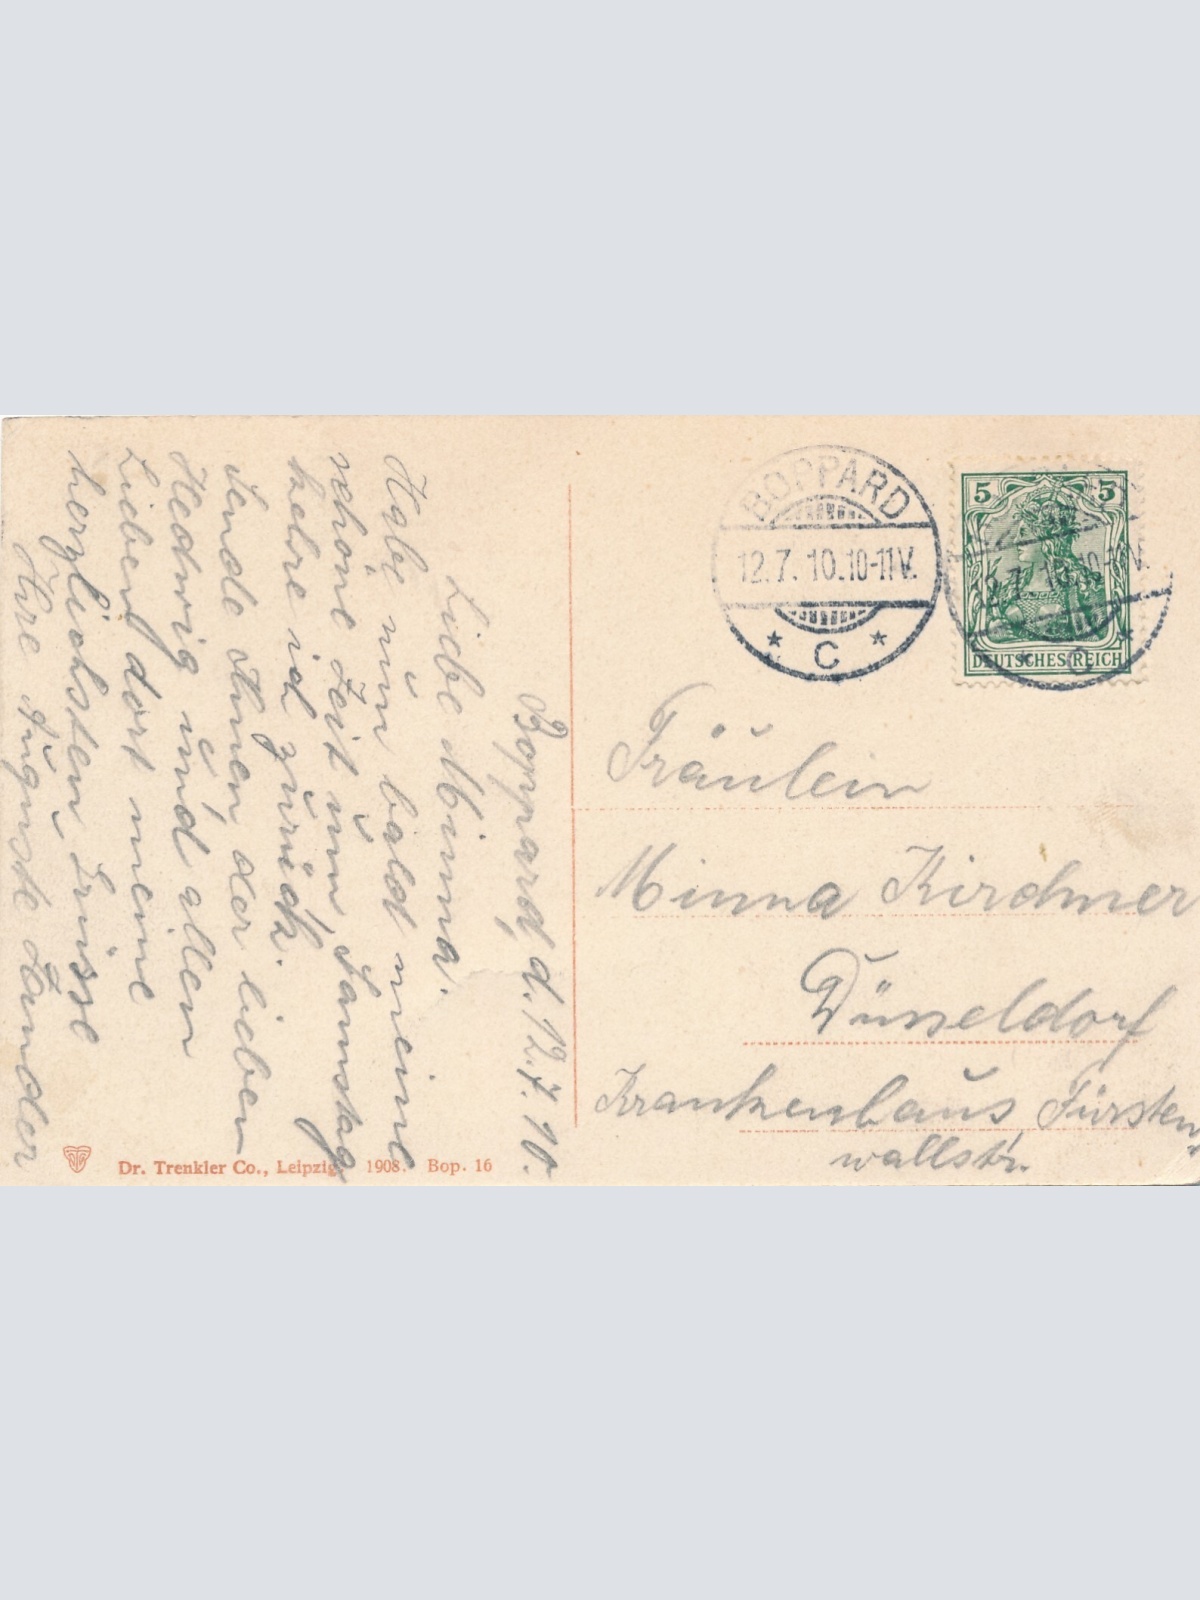 Boppard, d. 12.7.10.
Liebe Minna.
Habe nun bald meine
schöne Zeit um, Samstag
kehre ich zurück.
Sende Ihnen, der lieben
Hedwig und allen
Lieben dort meine
herzlichsten Grüsse
Ihre Auguste
BOPPARD
12.7.10.10-11V.
* C *
5 5
DEUTSCHES REICH
Fräulein
Minna Kirchner
Düsseldorf
Krankenhaus Fürsten
wallstr.
Dr. Trenkler Co., Leipzig. 1908. Bop. 16